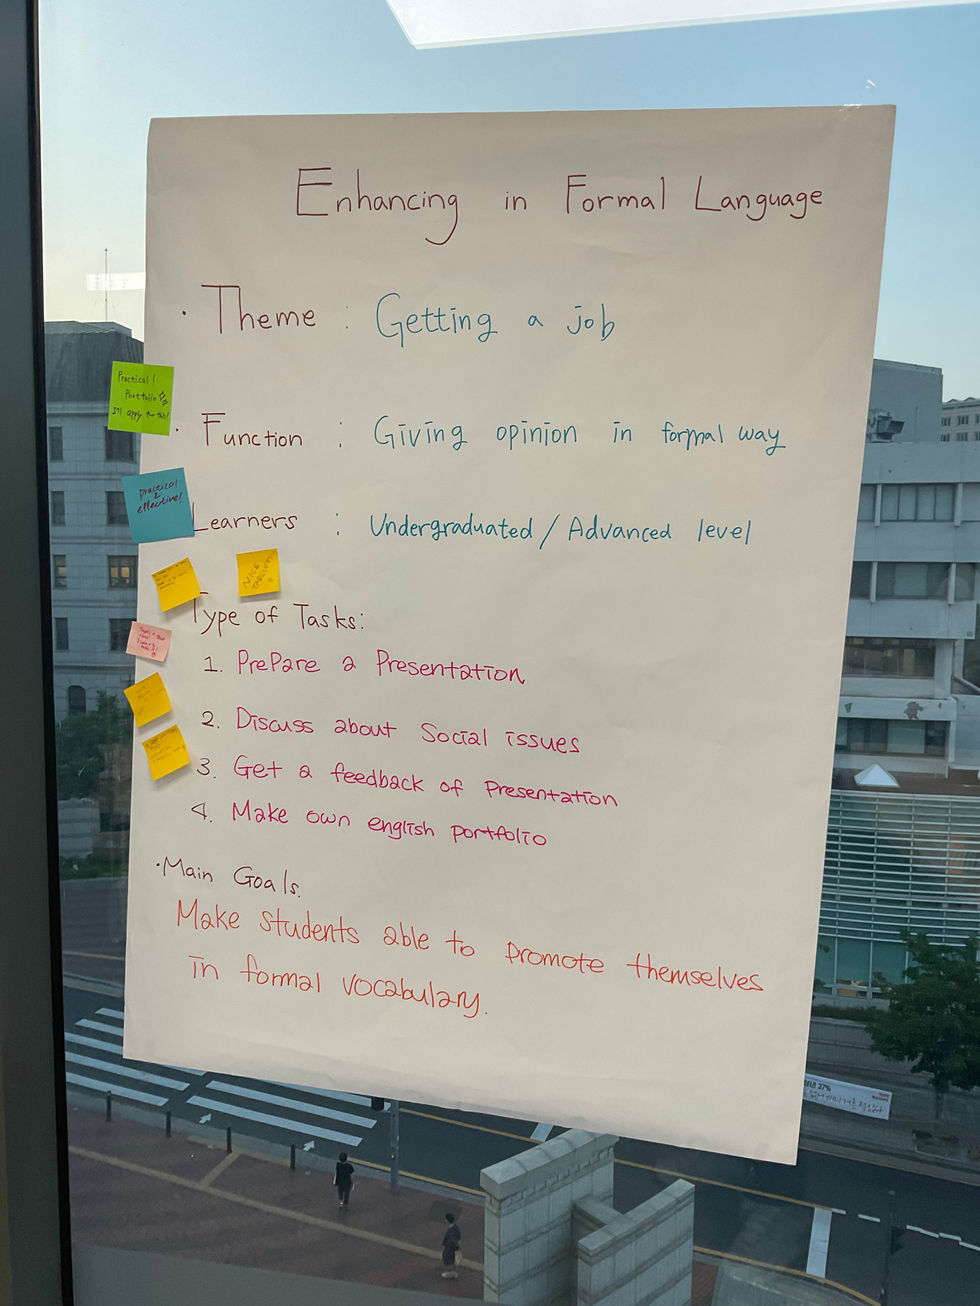 Enhancing in Formal Language
· Theme : Getting a job
Practical!
Portfolio
I'll apply for this!
· Function : Giving opinion in formal way
practical
&
effective!
Learners : Undergraduated / Advanced level
NICE
TARGET!
Type of Tasks:
1. Prepare a Presentation
2. Discuss about Social issues
3. Get a feedback of Presentation
4. Make own english portfolio
· Main Goals.
Make students able to promote themselves
in formal vocabulary.
37%